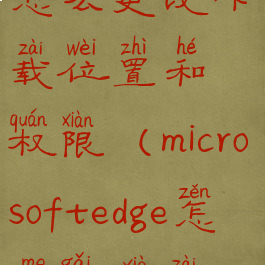 怎么更改下
zài wèi zhì hé
载位置和
quán xiàn
权限(micro
zěn
softedge怎
me gǎi xià zài